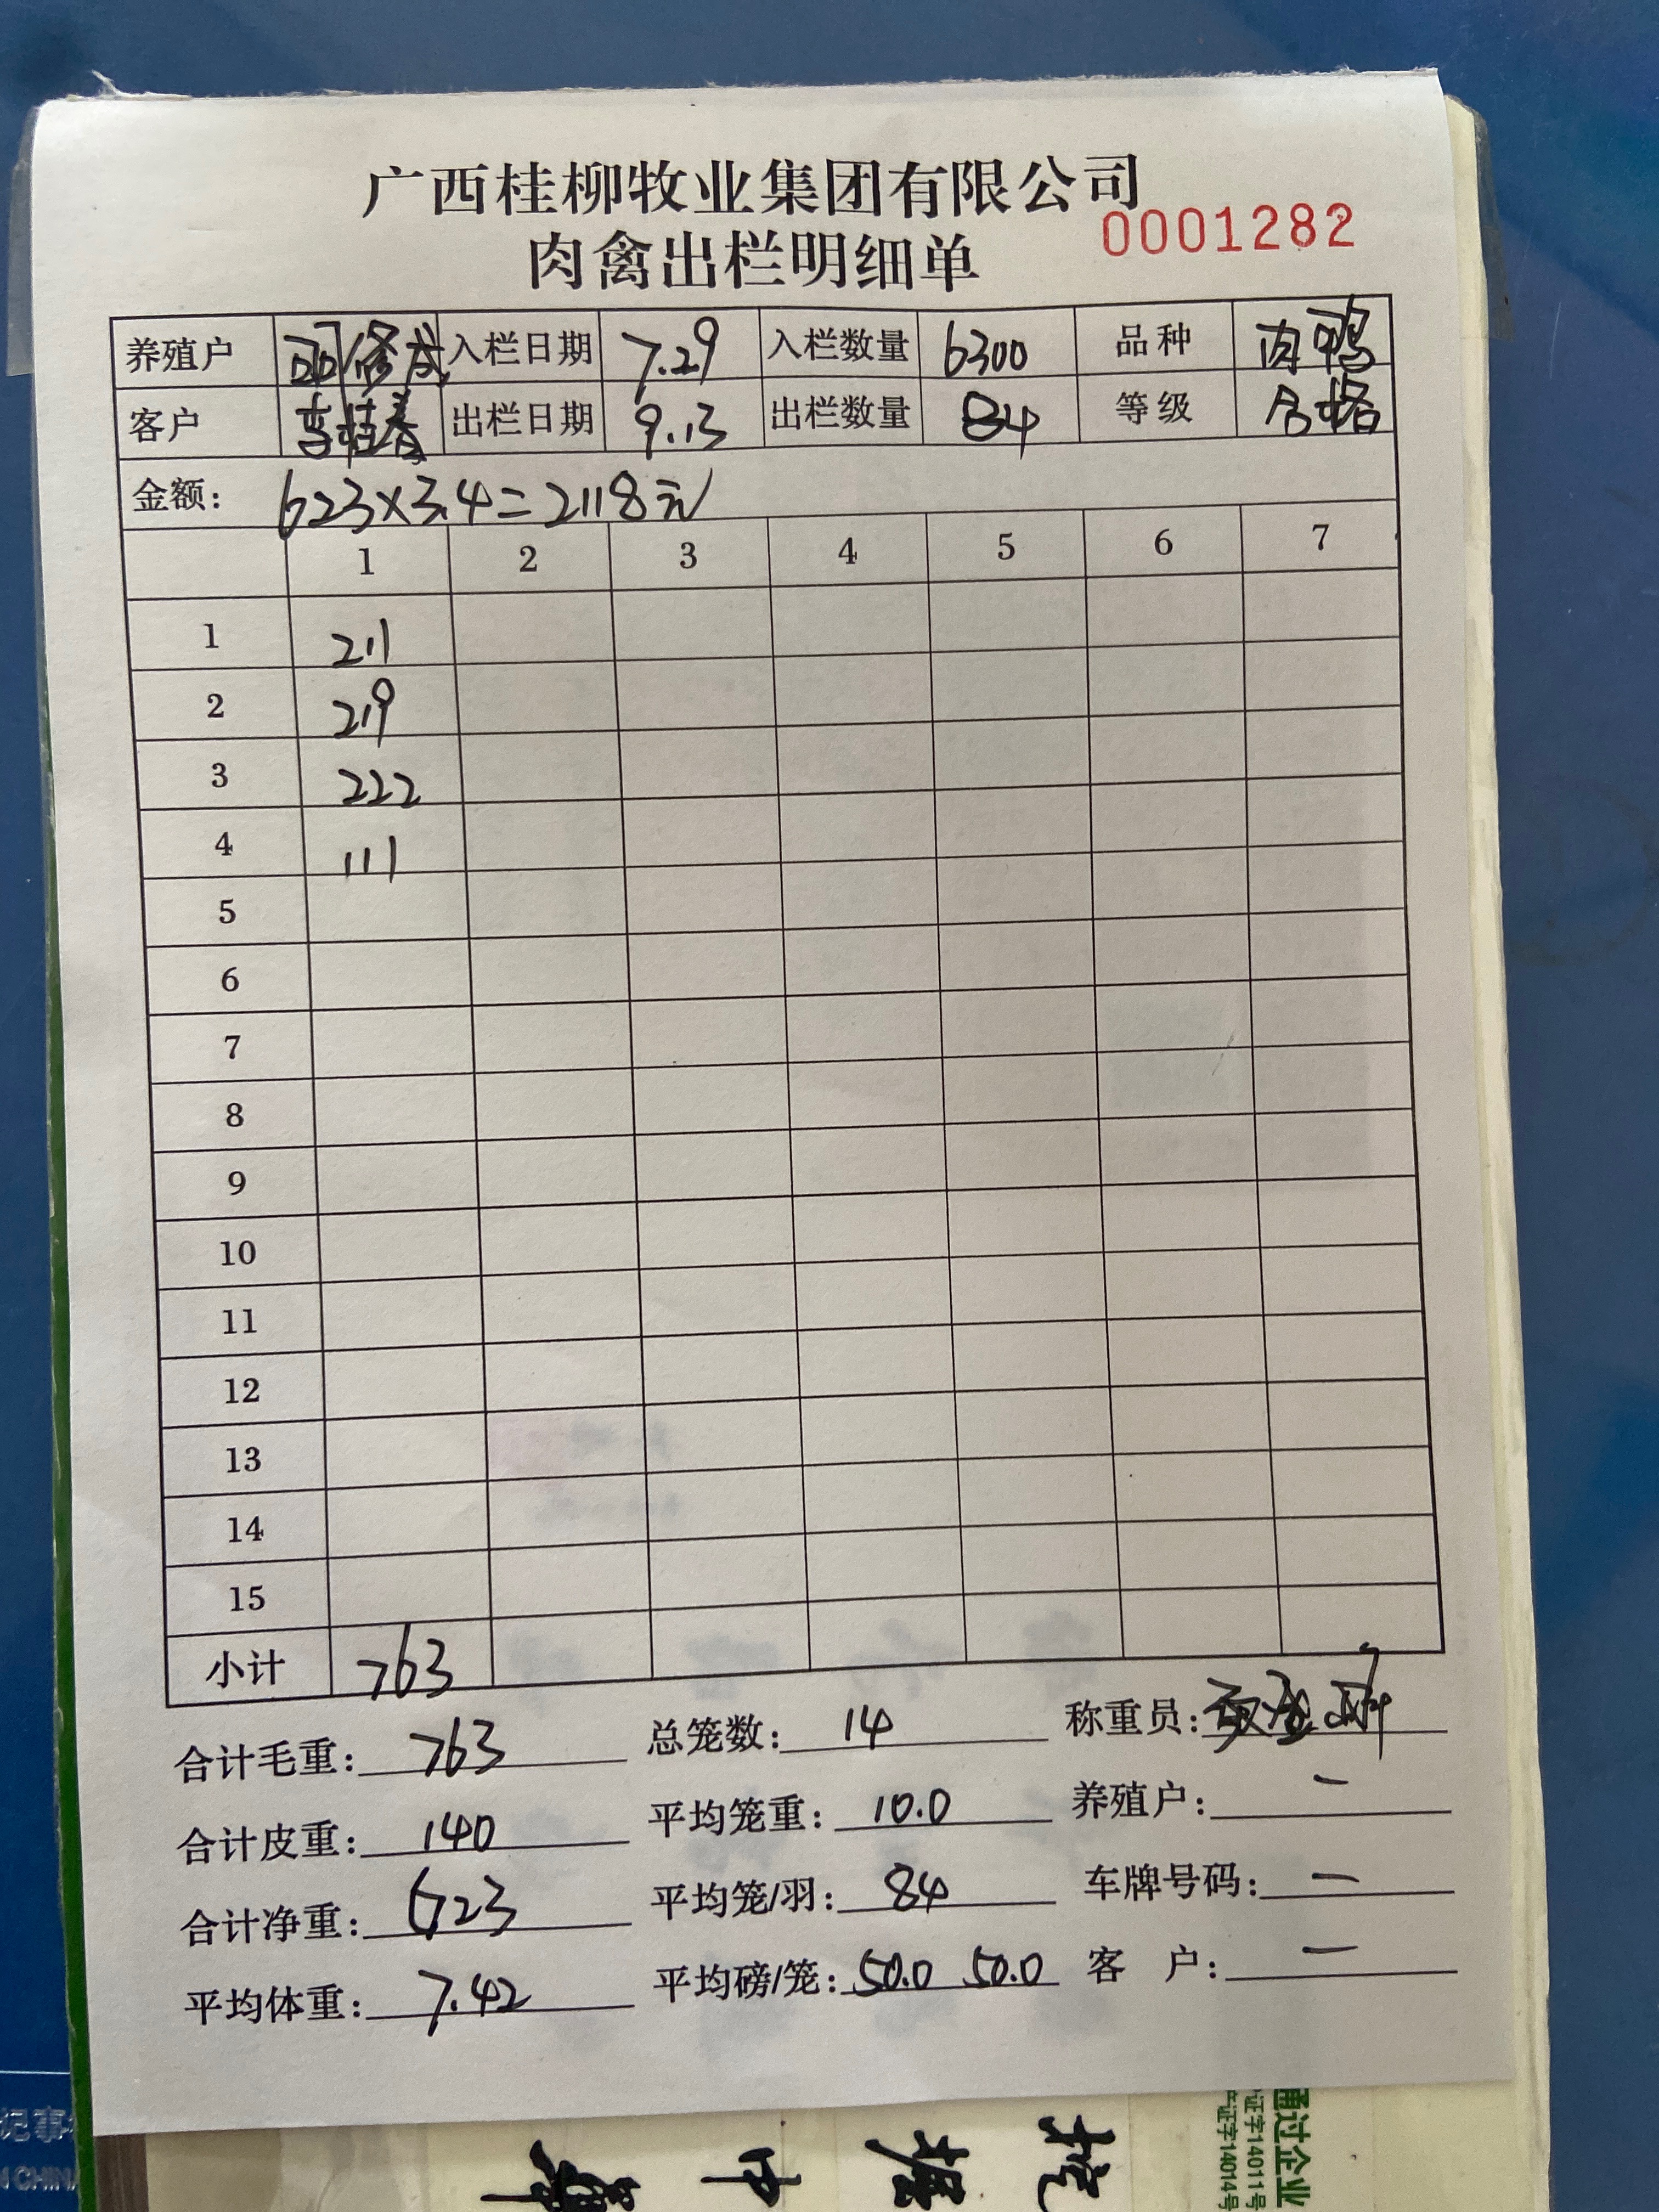 广西桂柳牧业集团有限公司
0001282
肉禽出栏明细单
养殖户 修成 入栏日期 7.29 入栏数量 6300 品种 肉鸭
客户 李桂春 出栏日期 9.13 出栏数量 84 等级 合格
金额: 623×3.4=2118元
1 2 3 4 5 6 7
1 211
2 219
3 222
4 111
5
6
7
8
9
10
11
12
13
14
15
小计 763
合计毛重: 763 总笼数: 14 称重员:
合计皮重: 140 平均笼重: 10.0 养殖户: —
合计净重: 623 平均笼/羽: 84 车牌号码: —
平均体重: 7.42 平均磅/笼: 50.0 50.0 客 户: —
记事
N CHINA
通过企业
证字14011号
产证字14014号